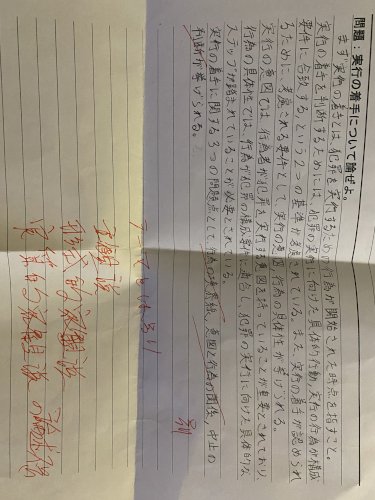 問題：実行の着手について論ぜよ。
まず実行の着手とは、犯罪を実行するための行為が開始された時点を指すこと。
実行の着手を判断するためには、犯罪の実行に向けた具体的行動、実行の行為が構成
要件に合致する、という2つの基準が考慮されている。また、実行の着手が認められ
るために、考慮される要件として、実行の意図、行為の具体性が挙げられる。
実行の意図では、行為者が犯罪を実行する意図を持っていることが必要とされており、
行為の具体性では、行為が犯罪の構成要件に適合し、犯罪の実行に向けた具体的な
ステップが踏まれていることが必要とされている。
実行の着手に関する3つの問題点として、行為の境界線、意図と行為の関係、中止の
判断が挙げられる。
別
主観説
形式的客観説
実質的客観説の